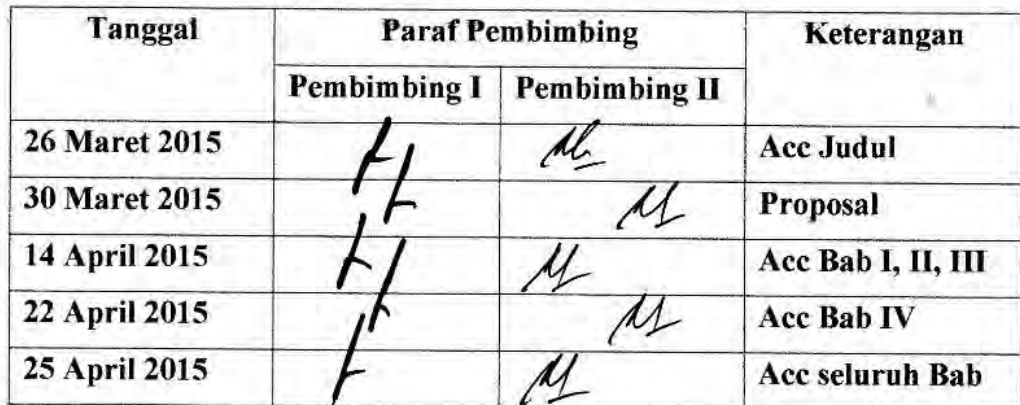 Tanggal Paraf Pembimbing Keterangan
Pembimbing I Pembimbing II
26 Maret 2015 Acc Judul
30 Maret 2015 Proposal
14 April 2015 Acc Bab I, II, III
22 April 2015 Acc Bab IV
25 April 2015 Acc seluruh Bab